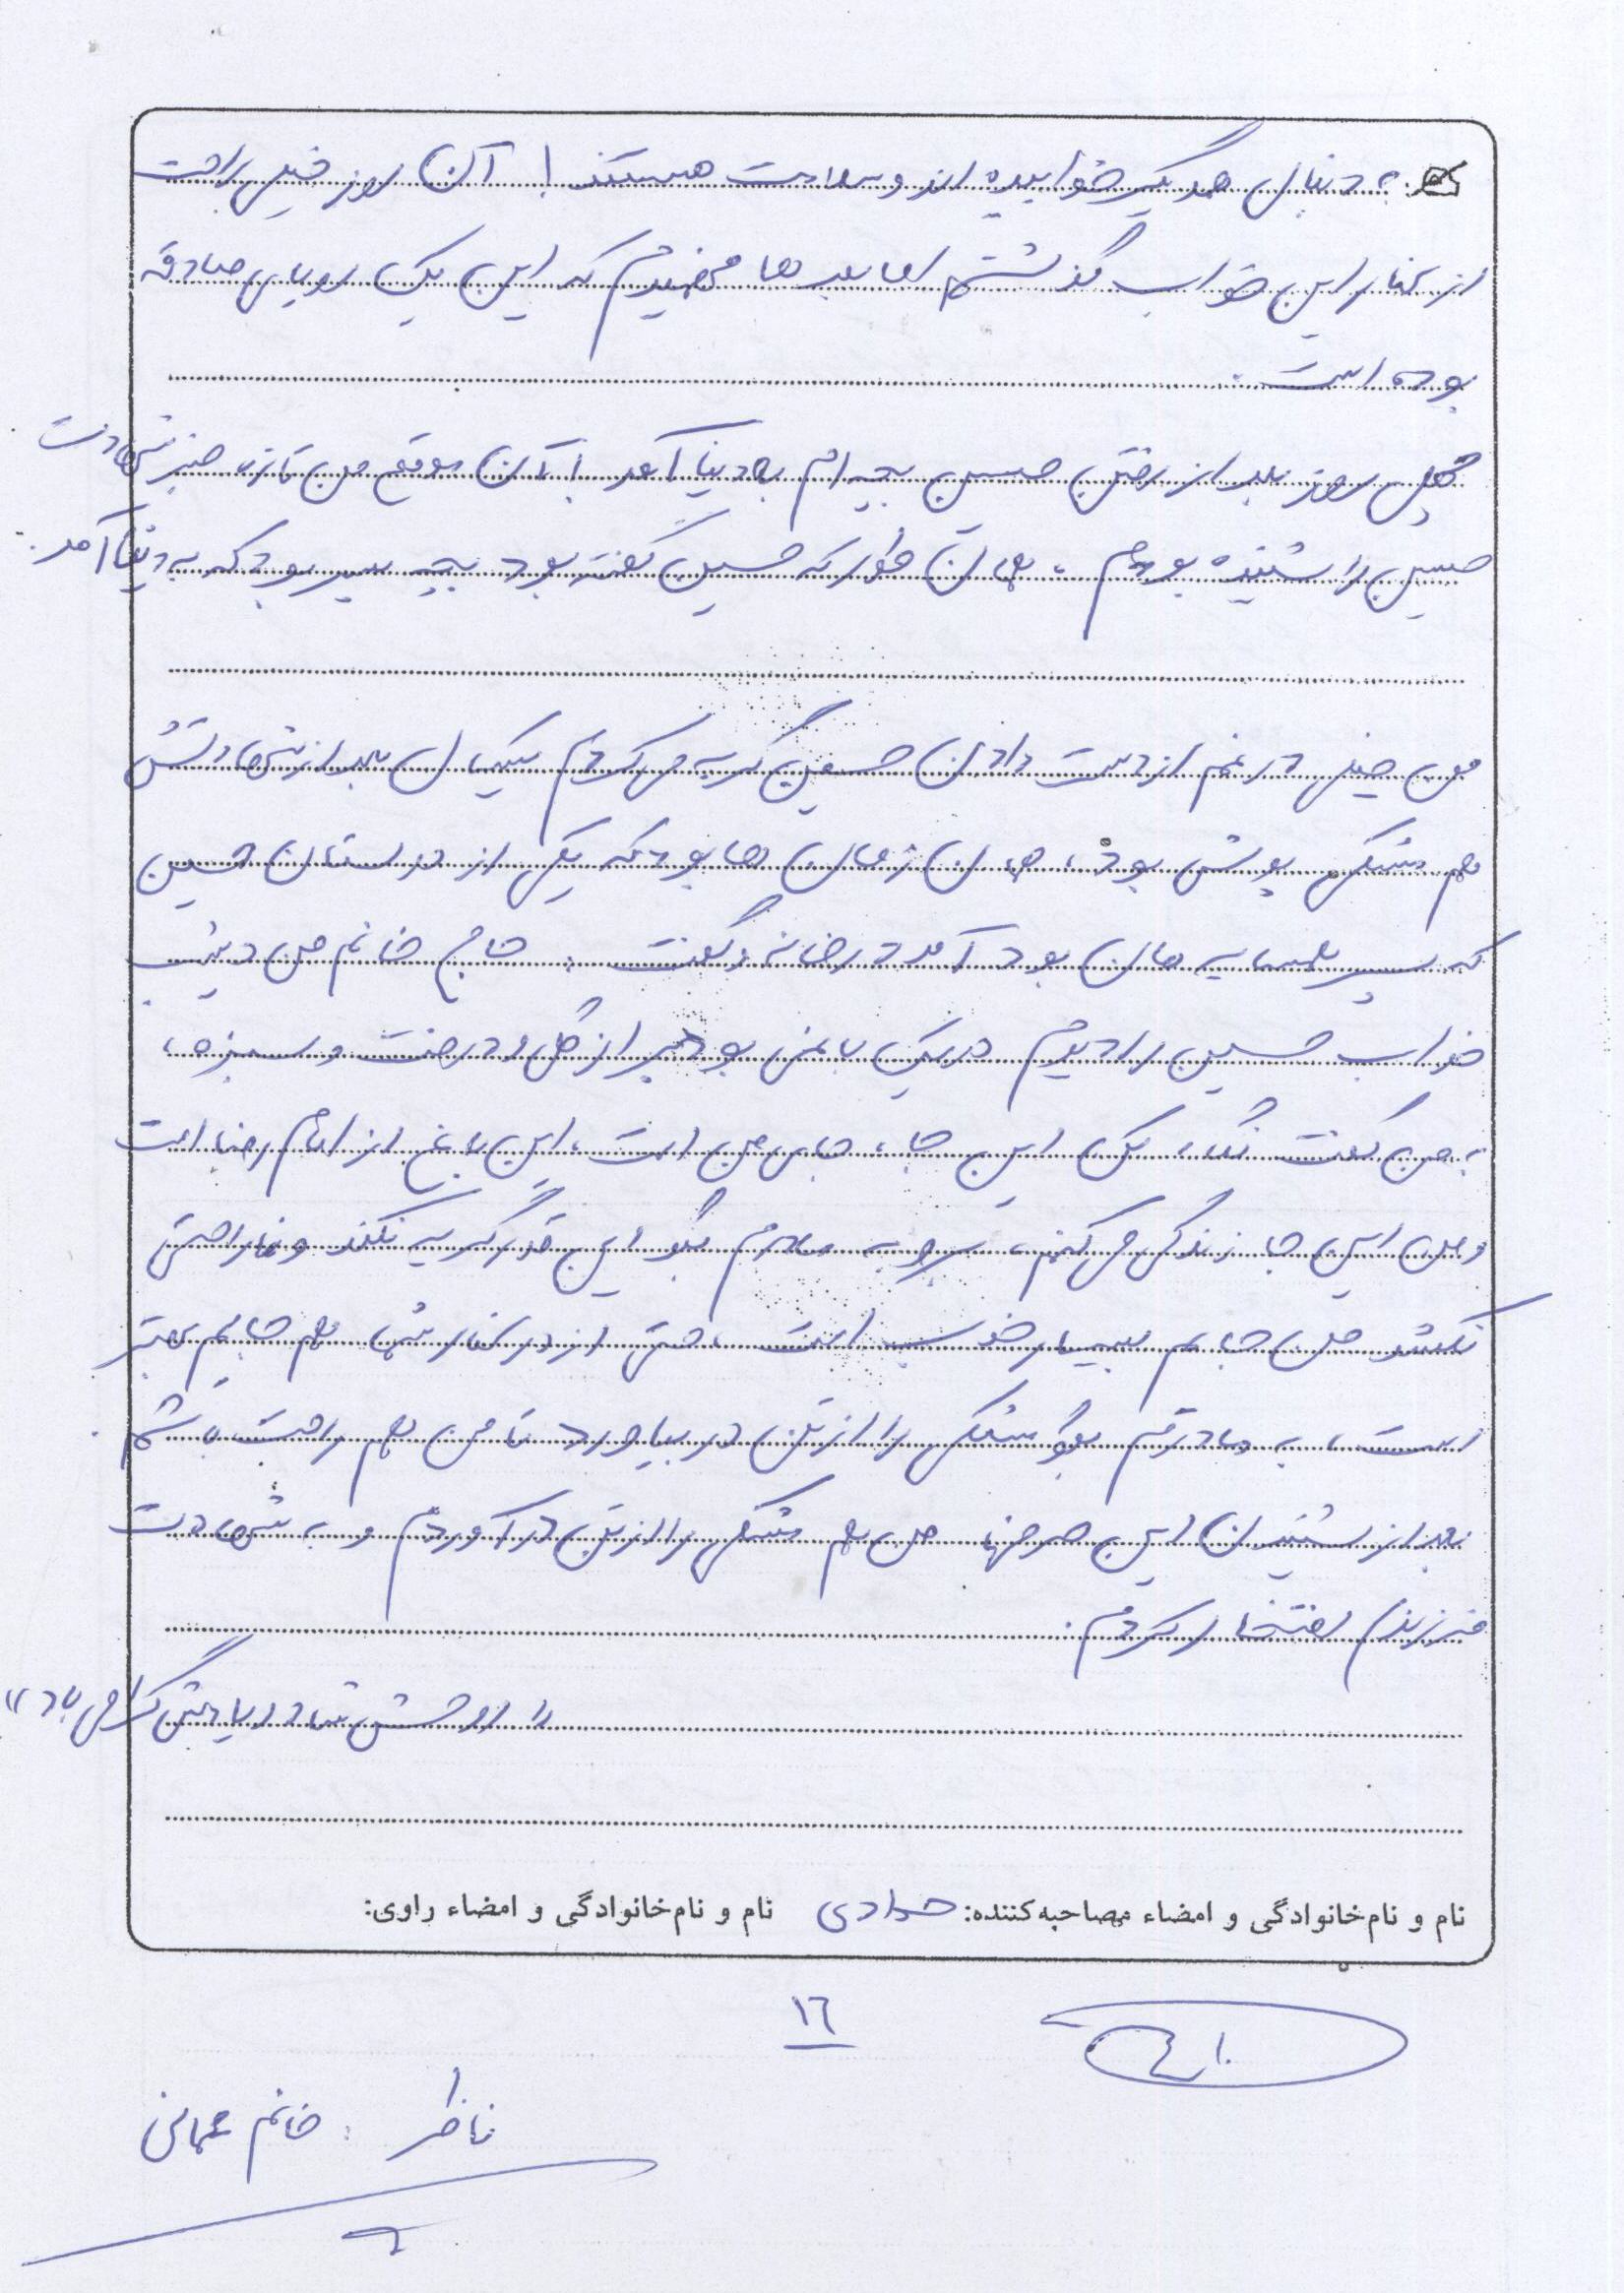 به دنبال همدیگر خوابیده اند و سلامت هستند! آن روز خیلی راحت
از کنار این خواب گذشتم اما بعدها فهمیدم که این یک رویای صادقه
بوده است.
چهل روز بعد از رفتن حسین بچه ام به دنیا آمد! آن موقع من تازه خبر شهادت
حسین را شنیده بودم، همان طور که حسین گفته بود بچه پسر بود که به دنیا آمد.
من خیلی در غم از دست دادن حسین گریه می کردم یکسال بعد از شهادتش
هم مشکی پوش بودم، همان زمان ها بود که یکی از دوستان حسین
که پسر همسایه مان بود آمد در خانه و گفت: حاج خانم من دیشب
خواب حسین را دیدم در یک باغی بود پر از گل و درخت و سبزه،
به من گفت نگاه کن این جا، جای من است، این باغ از امام رضا است
و من این جا زندگی می کنم، برو به مادرم بگو این قدر گریه نکند و ناراحتی
نکشد من جایم بسیار خوب است، حتی از در کنار شما هم جایم بهتر
است، به مادرم بگو مشکی را از تن در بیاورد تا من هم راحت باشم.
بعد از شنیدن این حرفها من هم مشکی را از تن در آوردم و به شهادت
فرزندم افتخار کردم.
"روحش شاد و یادش گرامی باد"
نام و نام خانوادگی و امضاء مصاحبه کننده: جوادی نام و نام خانوادگی و امضاء راوی:
۱۶
ناظر: خانم عمانی